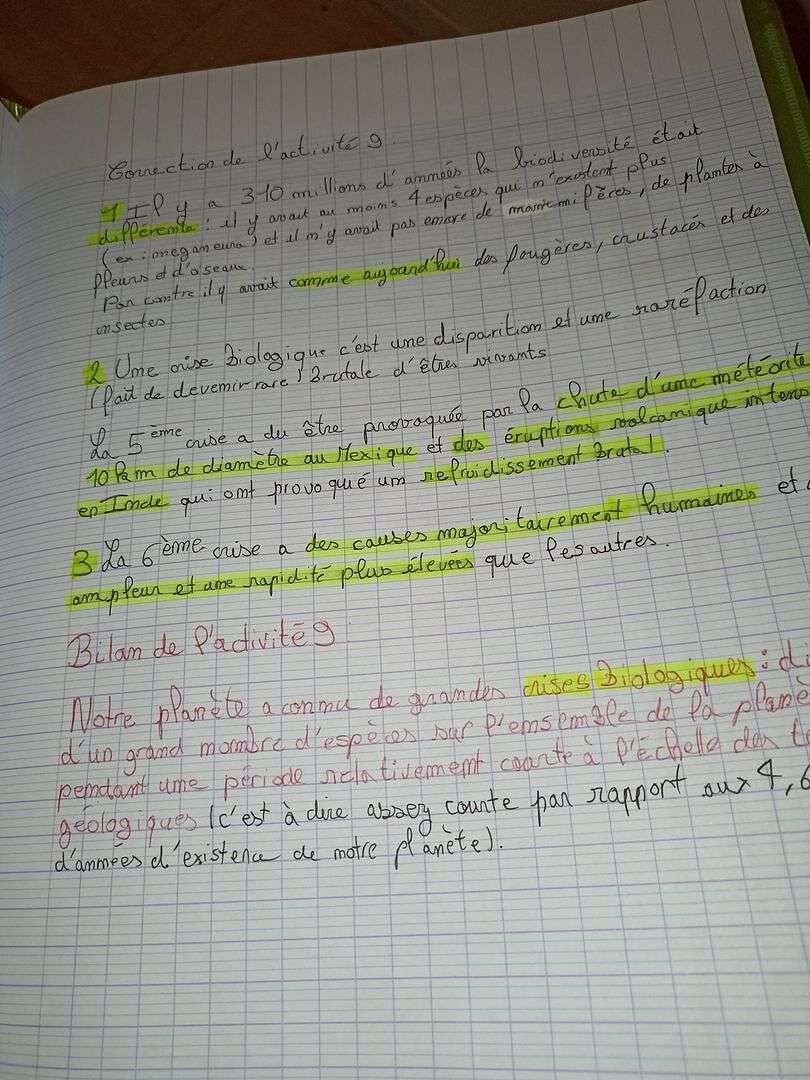 Correction de l'activité 9.
1 Il y a 310 millions d'années la biodiversité était
différente : il y avait au moins 4 espèces qui n'existent plus
(ex : meganeura) et il n'y avait pas encore de mammifères, de plantes à
fleurs et d'oiseau.
Par contre il y avait comme aujourd'hui des fougères, crustacés et des
insectes
2 Une crise Biologique c'est une disparition et une raréfaction
(fait de devenir rare) Brutale d'êtres vivants
La 5ème crise a du être provoquée par la chute d'une météorite
10 km de diamètre au Mexique et des éruptions volcanique
en Inde qui ont provoqué un refroidissement Brutal.
3 La 6ème crise a des causes majoritairement humaines et
ampleur et une rapidité plus élevées que les autres.
Bilan de l'activité 9
Notre planète a connu de grandes crises Biologiques :
d'un grand nombre d'espèces sur l'ensemble de la
pendant une période relativement courte à l'échelle des
géologiques (c'est à dire assez courte par rapport aux 4,6
d'années d'existence de notre planète).